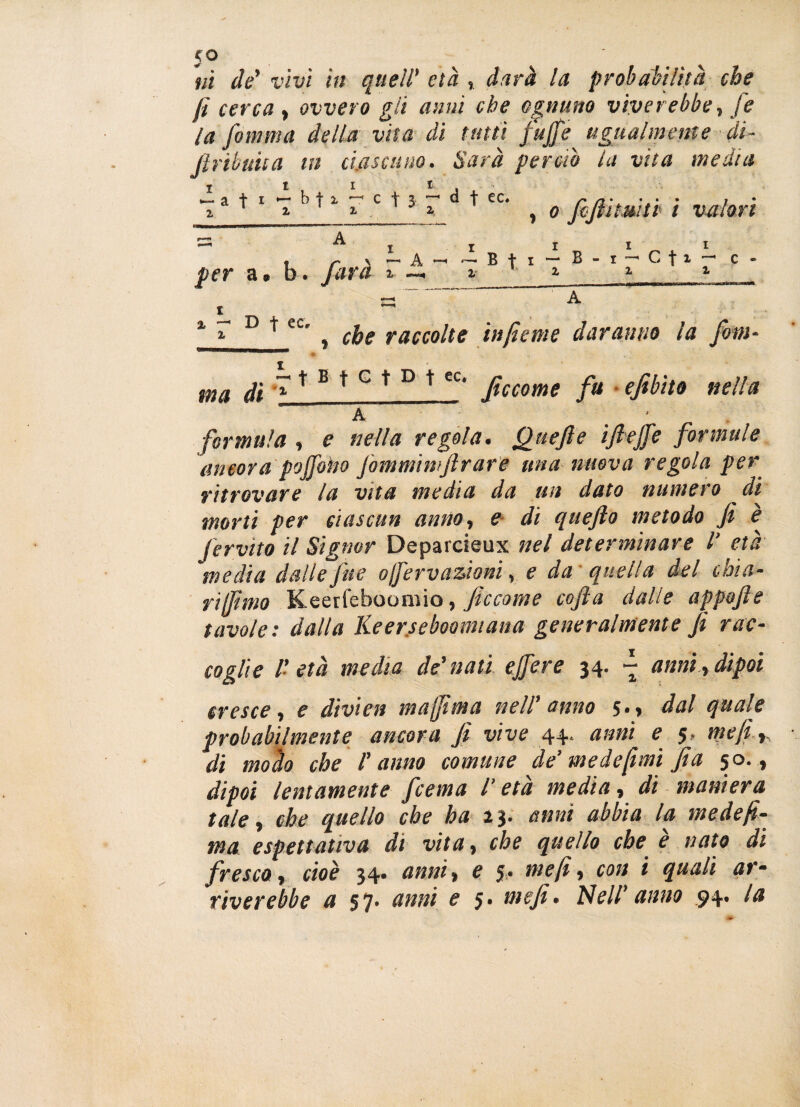 50
ni de' vivi in quell' età, darà la probabilità che
ſi cerca, ovvero gli anni che ognuno viverebbe, ſe
la ſomma della vita di tutti fuſſe ugualmente di-
ſtribuita in ciascuno. Sarà perciò la vita media
1/2 a † 1 1/2 b † 2 1/2 c † 3 1/2 d † ec.
, o ſoſtituiti i valori
= A
per a, b. ſarà 1/2 A — 1/2 B † 1 1/2 B - 1 1/2 C † 2 1/2 C -
= A
2 1/2 D † ec. , che raccolte inſieme daranno la ſom-
ma di 1/2 † B † C † D † ec. ſiccome fu eſibito nella
A
formula, e nella regola. Queſte iſteſſe formule
ancora poſſono ſomminiſtrare una nuova regola per
ritrovare la vita media da un dato numero di
morti per ciascun anno, e di queſto metodo ſi è
ſervito il Signor Deparcieux nel determinare l' età
media dalle ſue oſſervazioni, e da quella del chia-
riſſimo Keerſeboomio, ſiccome coſta dalle appoſte
tavole: dalla Keerseboomiana generalmente ſi rac-
coglie l' età media de' nati eſſere 34. 1/2 anni, dipoi
cresce, e divien maſſima nell' anno 5., dal quale
probabilmente ancora ſi vive 44. anni e 5. meſi,
di modo che l' anno comune de' medeſimi ſia 50.,
dipoi lentamente ſcema l' età media, di maniera
tale, che quello che ha 23. anni abbia la medeſi-
ma espettativa di vita, che quello che è nato di
fresco, cioè 34. anni, e 5. meſi, con i quali ar-
riverebbe a 57. anni e 5. meſi. Nell' anno 94. la